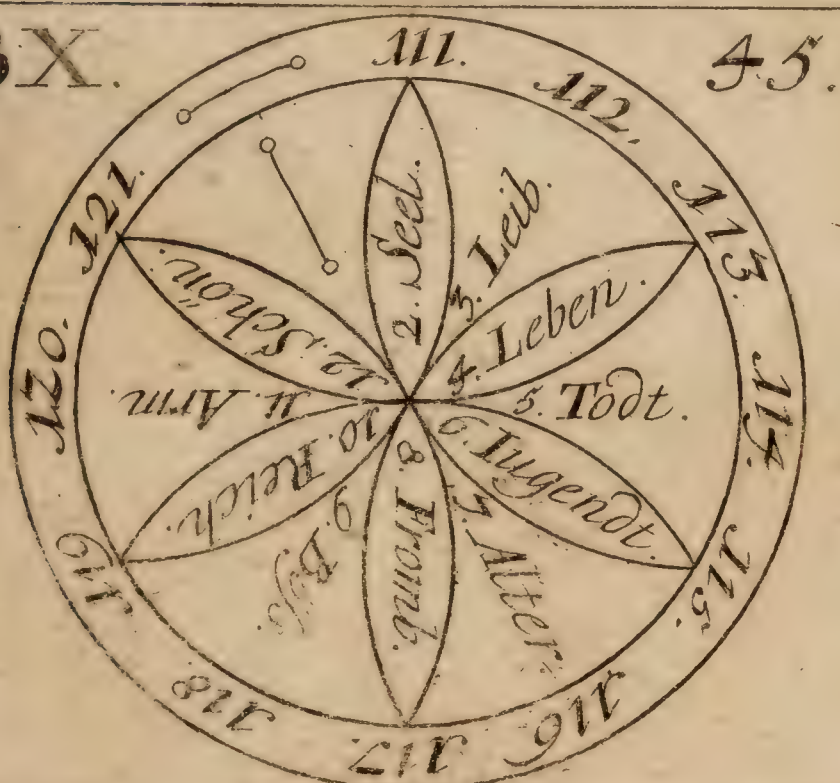 X.
45.
111.
112.
113.
114.
115.
116.
117.
118.
119
120.
121.
2. Seel.
3. Leib.
4. Leben.
5. Todt.
6. Iugendt.
7. Alter.
8. Fromb.
9. Böß.
10. Reich.
11. Arm.
12. Schön.